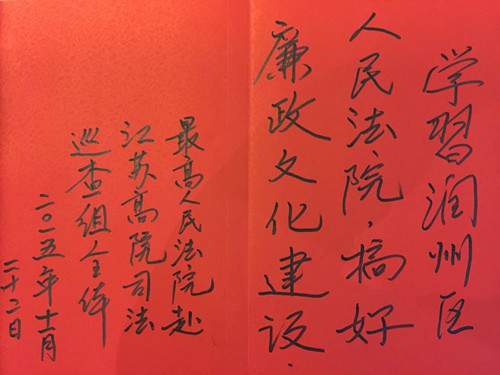 学習润州区
人民法院,搞好
廉政文化建设.
最高人民法院赴
江苏高院司法
巡查一组全体
二〇一五年十一月
二十二日